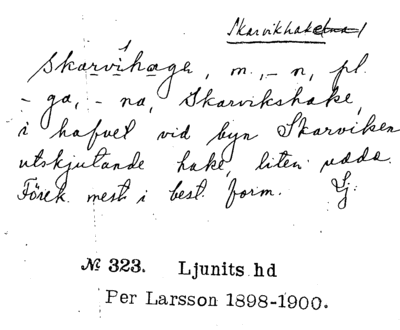 Skarvikhake
Skarvihage, m., -n, pl.
-ga, -na, Skarvikshake,
i hafvet vid byn Skarviken
utskjutande hake, liten udde.
Förek. mest i best. form. Lj.
№ 323. Ljunits hd
Per Larsson 1898-1900.